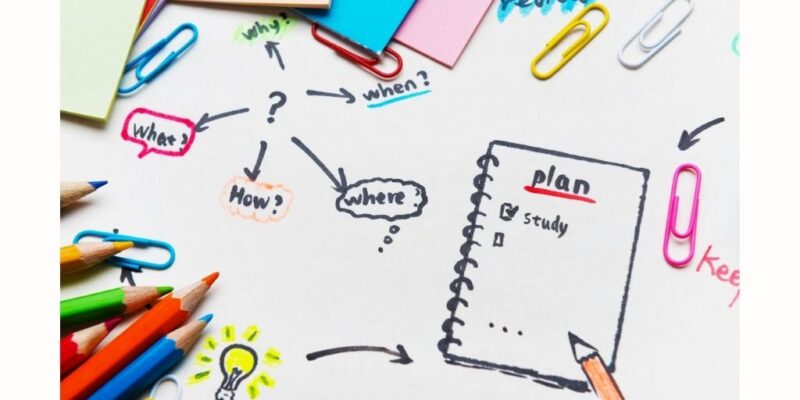 why?
?
when?
What?
How?
where?
plan
study
...